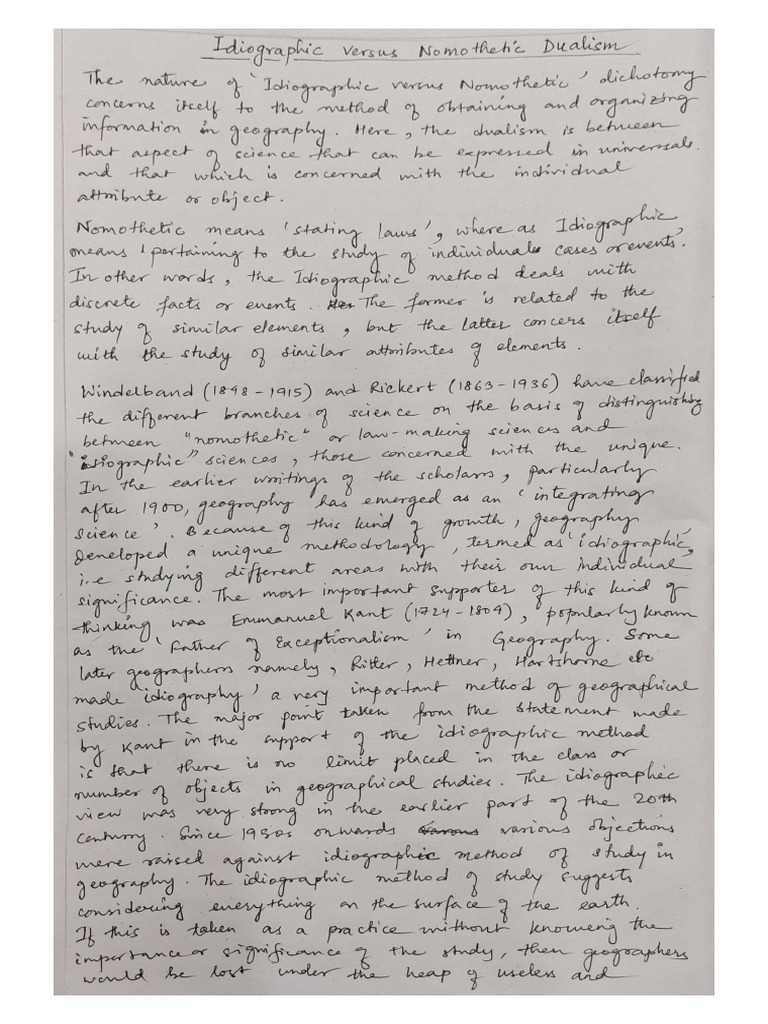 Idiographic versus Nomothetic Dualism
The nature of 'Idiographic versus Nomothetic' dichotomy
concerns itself to the method of obtaining and organizing
information in geography. Here, the dualism is between
that aspect of science that can be expressed in universals.
and that which is concerned with the individual
attribute or object.
Nomothetic means 'stating laws', where as Idiographic
means 'pertaining to the study of individual cases or events'.
In other words, the Idiographic method deals with
discrete facts or events. The former is related to the
study of similar elements, but the latter concers itself
with the study of similar attributes of elements.
Windelband (1848-1915) and Rickert (1863-1936) have classified
the different branches of science on the basis of distinguishing
between "nomothetic" or law-making sciences and
"idiographic" sciences, those concerned with the unique.
In the earlier writings of the scholars, particularly
after 1900, geography has emerged as an 'integrating
science'. Because of this kind of growth, geography
developed a unique methodology, termed as 'idiographic',
i.e studying different areas with their own individual
significance. The most important supporter of this kind of
thinking was Emmanuel Kant (1724-1804), popularly known
as the 'Father of Exceptionalism' in Geography. Some
later geographers namely, Ritter, Hettner, Hartshorne etc
made 'idiography' a very important method of geographical
studies. The major point taken from the statement made
by Kant in the support of the idiographic method
is that there is no limit placed in the class or
number of objects in geographical studies. The idiographic
view was very strong in the earlier part of the 20th
century. Since 1950s onwards various objections
were raised against idiographic method of study in
geography. The idiographic method of study suggests
considering everything on the surface of the earth.
If this is taken as a practice without knoweing the
importance or significance of the study, then geographers
would be lost under the heap of useless and